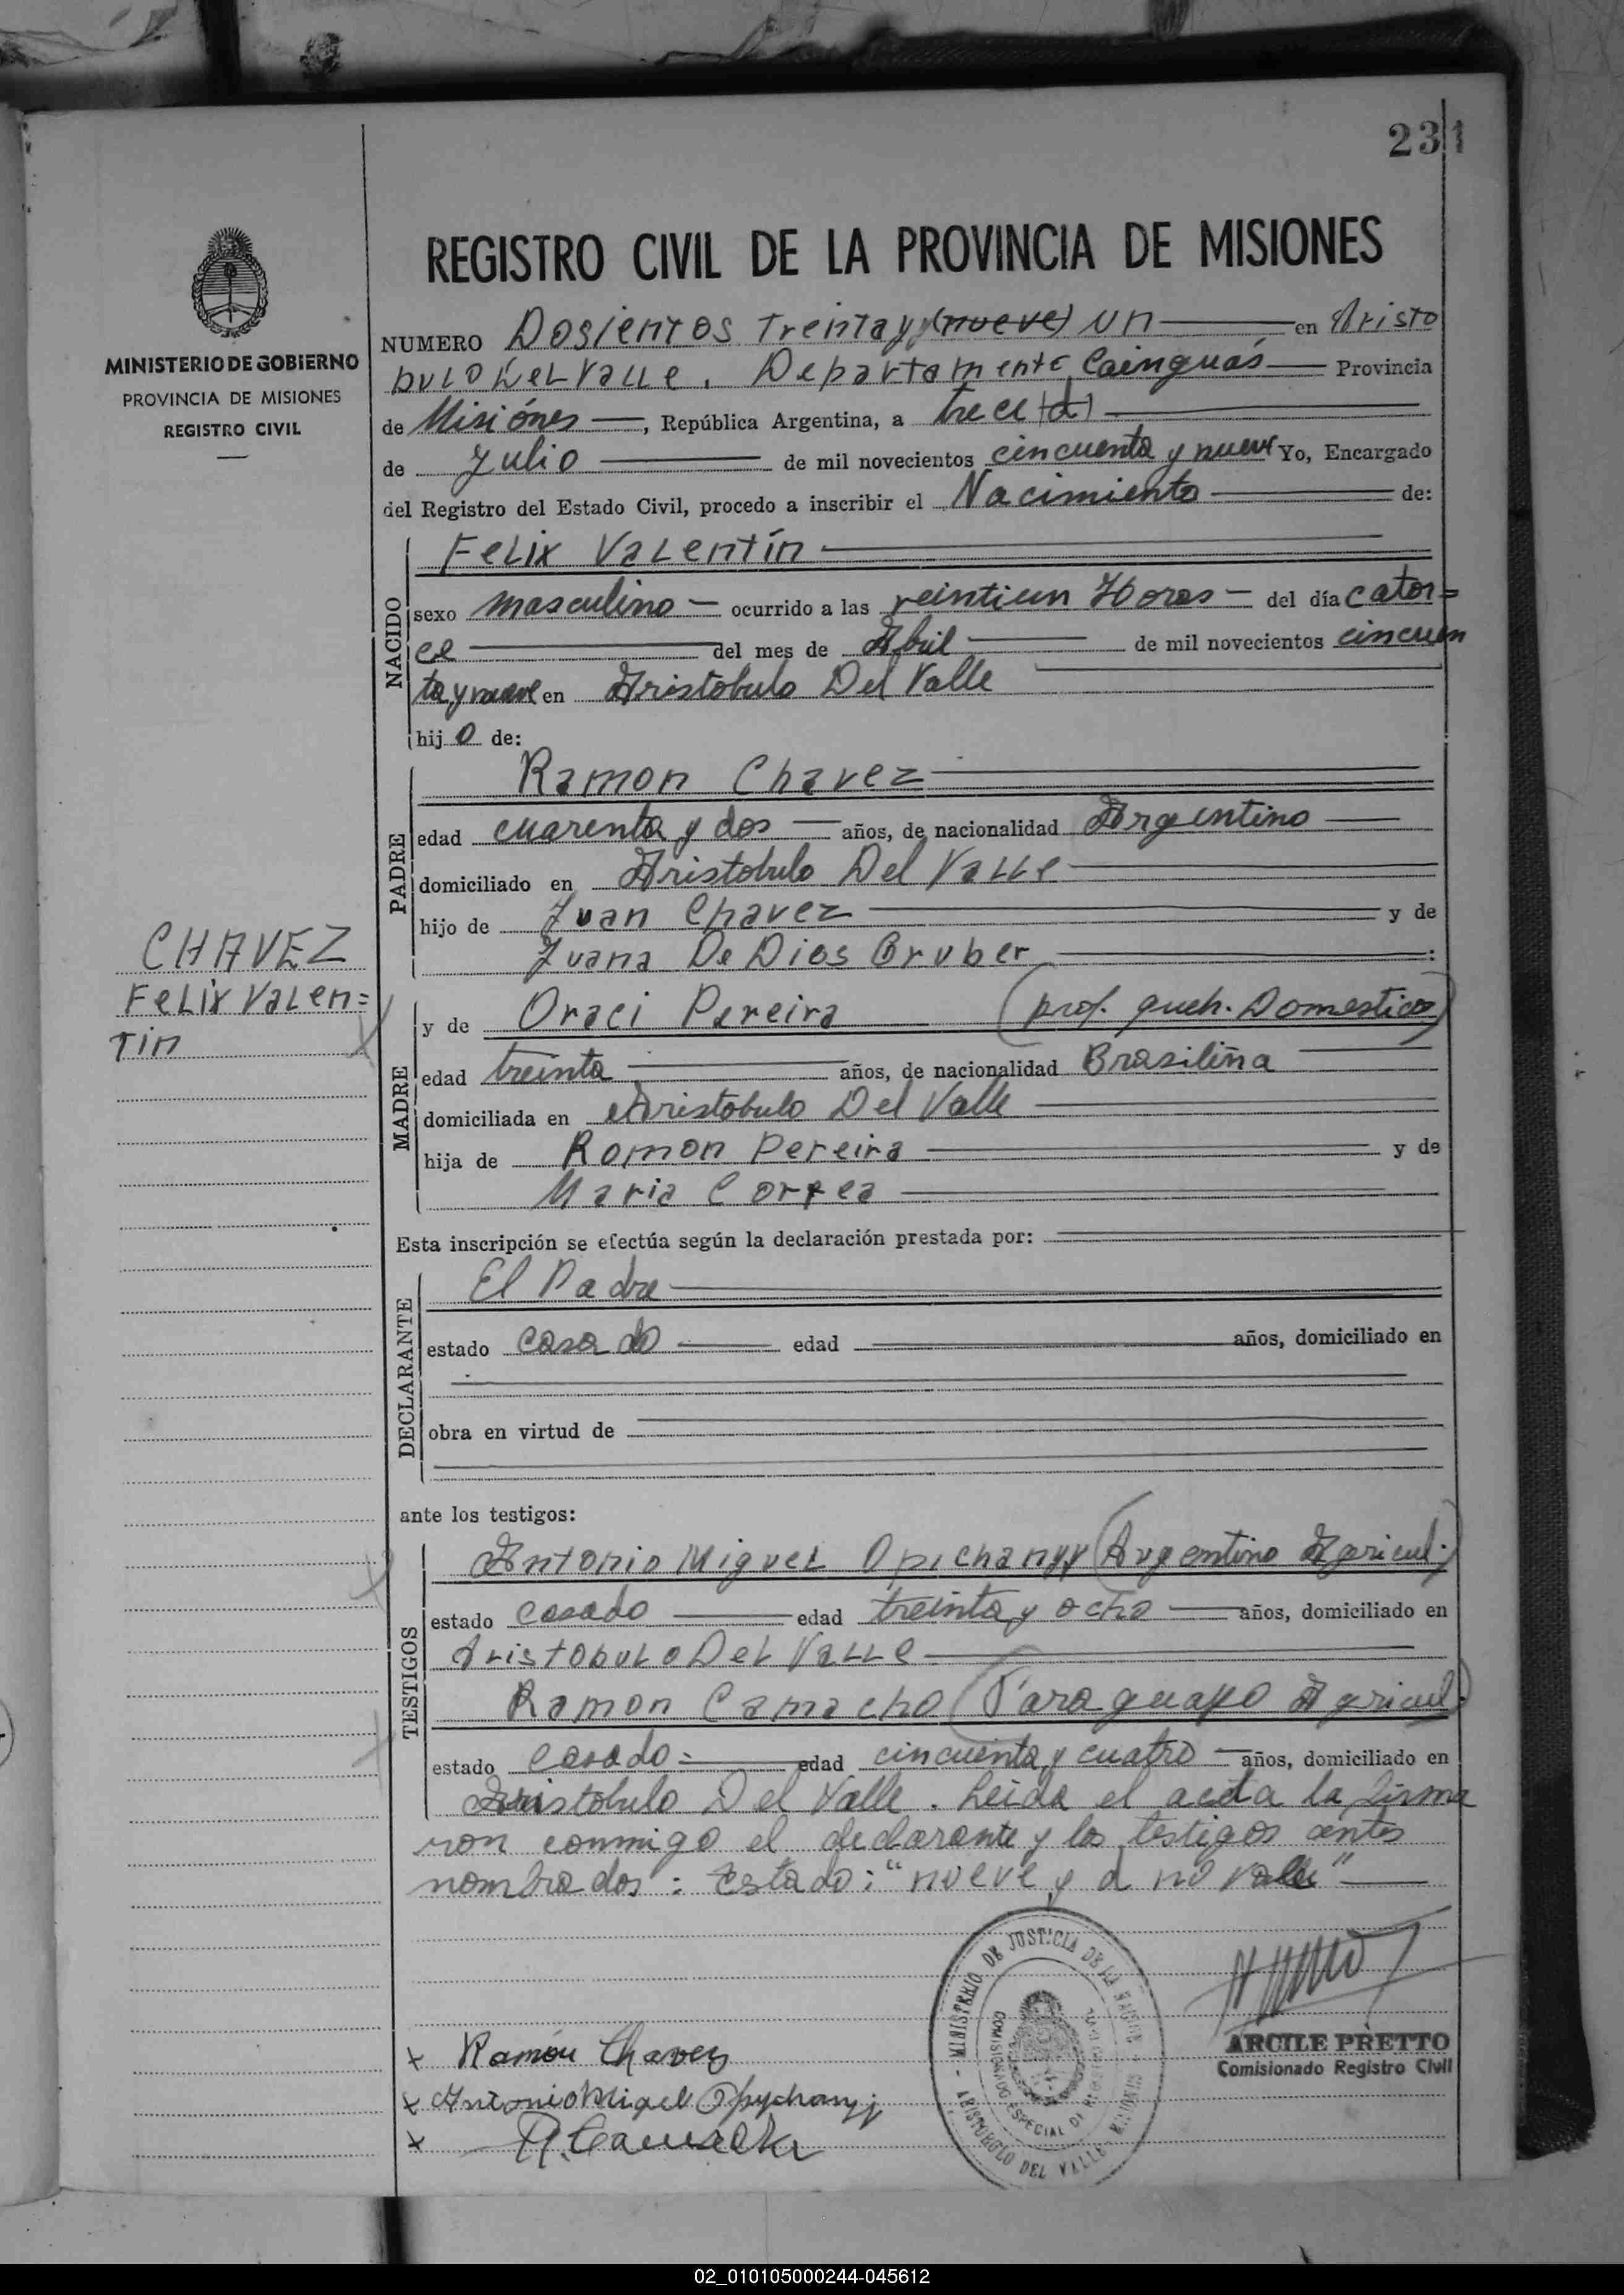 231
REGISTRO CIVIL DE LA PROVINCIA DE MISIONES
MINISTERIO DE GOBIERNO
PROVINCIA DE MISIONES
REGISTRO CIVIL
NUMERO Dosientos Treinta y (nueve) un en Aristo
bulo Del Valle. Departamento Cainguás Provincia
de Misiónes, República Argentina, a trece (d)
de Julio de mil novecientos cincuenta y nueve Yo, Encargado
del Registro del Estado Civil, procedo a inscribir el Nacimiento de:
NACIDO
Felix Valentín
sexo masculino ocurrido a las veintiun Horas del día cator=
ce del mes de Abril de mil novecientos cincuen
ta y nueve en Aristobulo Del Valle
hijo de:
PADRE
Ramon Chavez
edad cuarenta y dos años, de nacionalidad Argentino
domiciliado en Aristobulo Del Valle
hijo de Juan Chavez y de
Juana De Dios Bruber :
CHAVEZ
Felix Valen=
Tin
MADRE
y de Oraci Pereira (prof. queh. Domestico)
edad treinta años, de nacionalidad Brasileña
domiciliada en Aristobulo Del Valle
hija de Romon Pereira y de
Maria Correa
Esta inscripción se efectúa según la declaración prestada por:
DECLARANTE
El Padre
estado casado edad años, domiciliado en
obra en virtud de
ante los testigos:
TESTIGOS
Antonio Miguel Opichanyy (Argentino Agricul.)
estado casado edad treinta y ocho años, domiciliado en
Aristobulo Del Valle
Ramon Camacho (Paraguayo Agricul.)
estado casado= edad cincuenta y cuatro años, domiciliado en
Aristobulo Del Valle. Leida el acta la firma
ron conmigo el declarante y los testigos antes
nombrados: Estado: "nueve y d no vale"
MINISTERIO DE JUSTICIA DE LA NACION
COMISIONADO ESPECIAL DE
ARISTOBULO DEL VALLE - MISIONES
ARCILE PRETTO
Comisionado Registro Civil
x Ramón Chavez
x Antonio Miguel Opychanyj
x R. Camacho
02_010105000244-045612